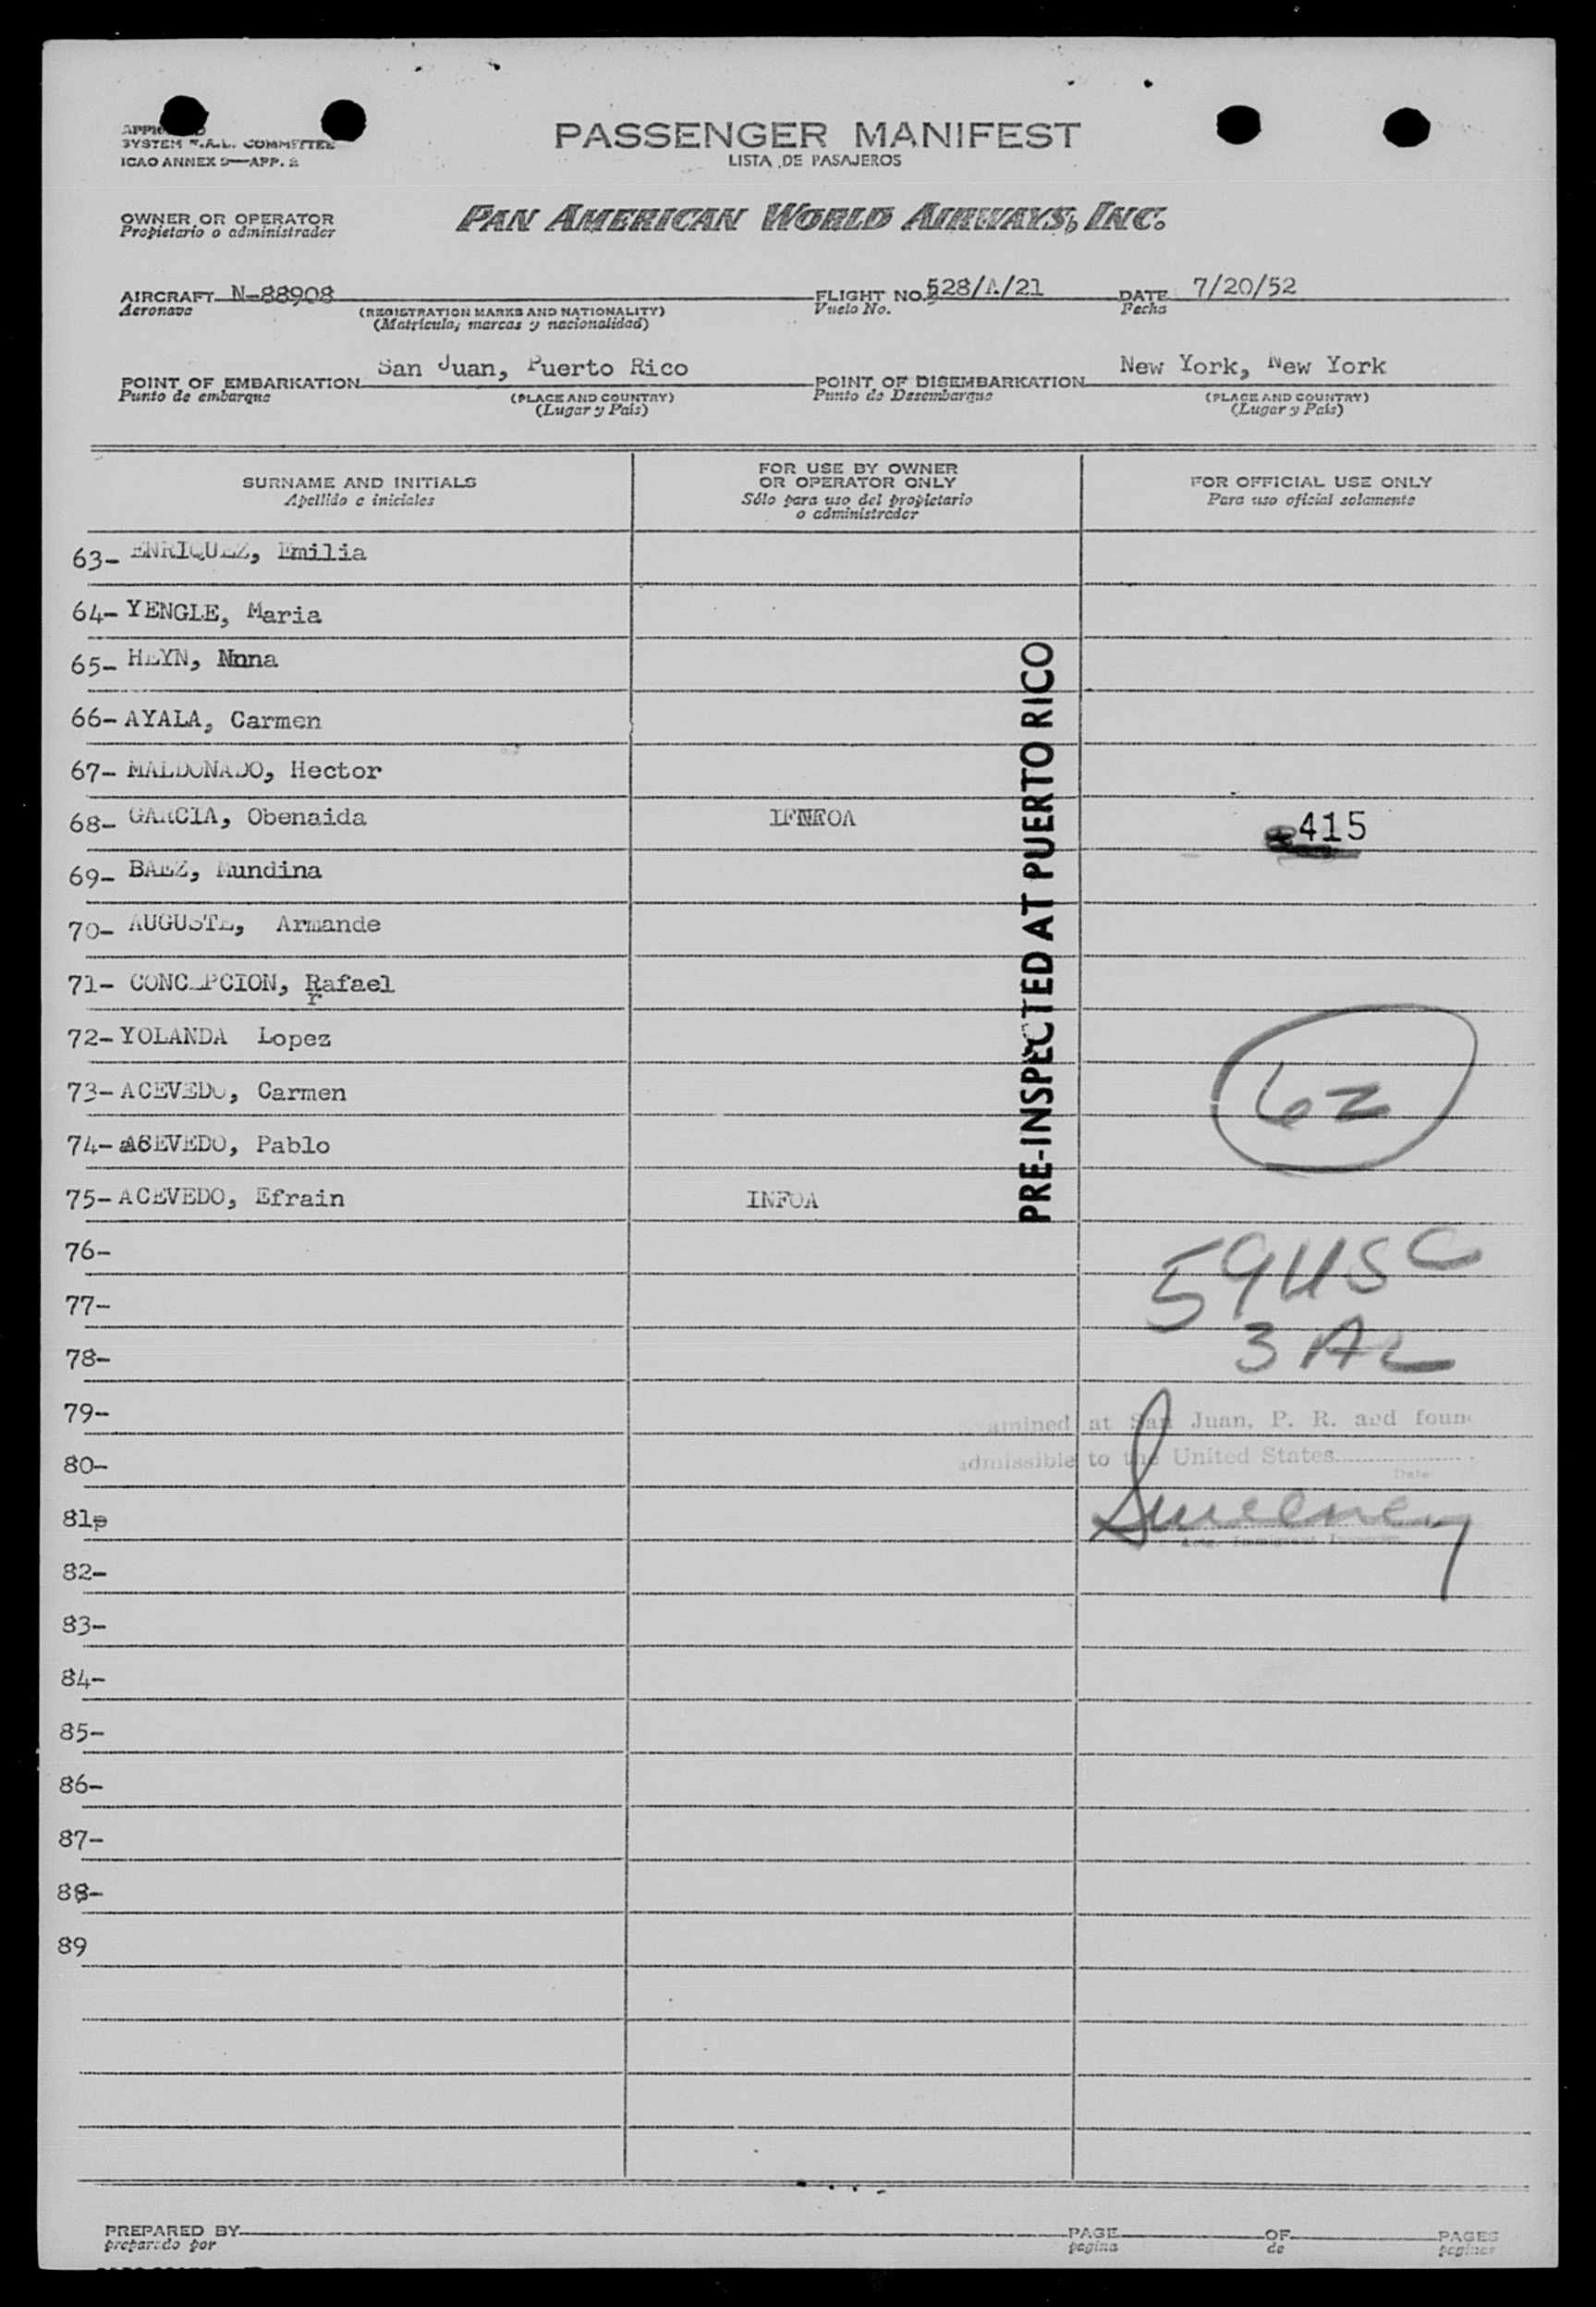 PASSENGER MANIFEST
LISTA DE PASAJEROS
SYSTEM F.A.L. COMMITTEE
ICAO ANNEX 9—APP. 2
OWNER OR OPERATOR
Propietario o administrador
PAN AMERICAN WORLD AIRWAYS, INC.
AIRCRAFT N-88908 FLIGHT NO. 528/A/21 DATE 7/20/52
Aeronave (REGISTRATION MARKS AND NATIONALITY) Vuelo No. Fecha
(Matrícula, marcas y nacionalidad)
POINT OF EMBARKATION San Juan, Puerto Rico POINT OF DISEMBARKATION New York, New York
Punto de embarque (PLACE AND COUNTRY) Punto de Desembarque (PLACE AND COUNTRY)
(Lugar y País) (Lugar y País)
SURNAME AND INITIALS
Apellido e iniciales
FOR USE BY OWNER
OR OPERATOR ONLY
Sólo para uso del propietario
o administrador
FOR OFFICIAL USE ONLY
Para uso oficial solamente
63- ENRIQUEZ, Emilia
64- YENGLE, Maria
65- HEYN, Nona
66- AYALA, Carmen
67- MALDONADO, Hector
68- GARCIA, Obenaida 415
69- BAEZ, Mundina
70- AUGUSTE, Armande
71- CONCEPCION, Rafael
r
72- YOLANDA Lopez
73- ACEVEDO, Carmen
74- ACEVEDO, Pablo
75- ACEVEDO, Efrain INFOA
PRE-INSPECTED AT PUERTO RICO
62
76-
59 USC
77-
3 AL
78-
79-
Examined at San Juan, P. R. and found
80-
admissible to the United States
Date
81
Sweeney
82-
83-
84-
85-
86-
87-
88-
89
PREPARED BY PAGE OF PAGES
preparado por pagina de paginas